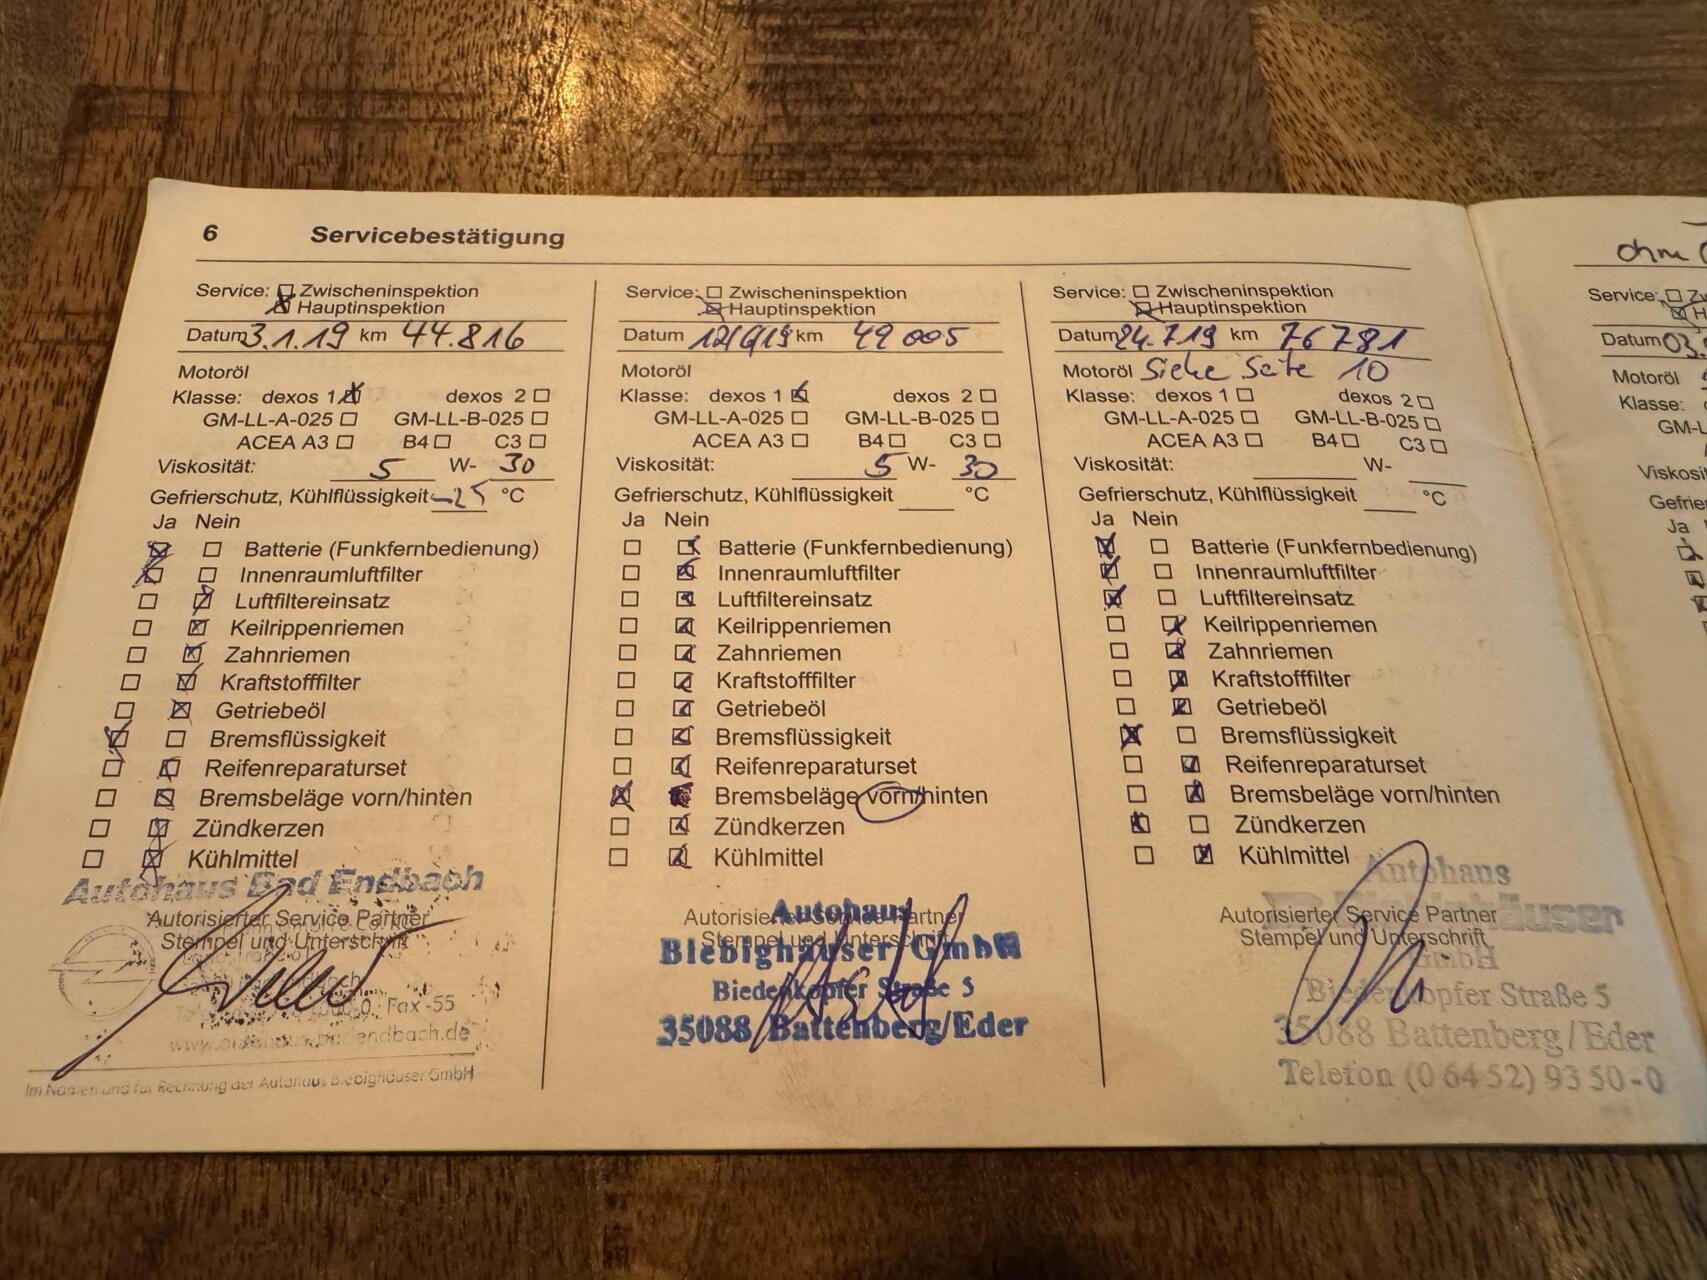 6 Servicebestätigung
Service: Zwischeninspektion
Hauptinspektion
Datum 3.1.19 km 44.816
Motoröl
Klasse: dexos 1 dexos 2
GM-LL-A-025 GM-LL-B-025
ACEA A3 B4 C3
Viskosität: 5 W- 30
Gefrierschutz, Kühlflüssigkeit -25 °C
Ja Nein
Batterie (Funkfernbedienung)
Innenraumluftfilter
Luftfiltereinsatz
Keilrippenriemen
Zahnriemen
Kraftstofffilter
Getriebeöl
Bremsflüssigkeit
Reifenreparaturset
Bremsbeläge vorn/hinten
Zündkerzen
Kühlmittel
Autohaus Bad Endbach
Autorisierter Service Partner
Stempel und Unterschrift
Fax -55
Im Namen und für Rechnung der Autohaus Biebighäuser GmbH
Service: Zwischeninspektion
Hauptinspektion
Datum km 49005
Motoröl
Klasse: dexos 1 dexos 2
GM-LL-A-025 GM-LL-B-025
ACEA A3 B4 C3
Viskosität: 5 W- 30
Gefrierschutz, Kühlflüssigkeit °C
Ja Nein
Batterie (Funkfernbedienung)
Innenraumluftfilter
Luftfiltereinsatz
Keilrippenriemen
Zahnriemen
Kraftstofffilter
Getriebeöl
Bremsflüssigkeit
Reifenreparaturset
Bremsbeläge vorn/hinten
Zündkerzen
Kühlmittel
Autohaus
Autorisierter Service Partner
Stempel und Unterschrift
Biebighäuser GmbH
Biedenkopfer Straße 5
35088 Battenberg/Eder
Service: Zwischeninspektion
Hauptinspektion
Datum 24.7.19 km 76781
Motoröl Siehe Seite 10
Klasse: dexos 1 dexos 2
GM-LL-A-025 GM-LL-B-025
ACEA A3 B4 C3
Viskosität: W-
Gefrierschutz, Kühlflüssigkeit °C
Ja Nein
Batterie (Funkfernbedienung)
Innenraumluftfilter
Luftfiltereinsatz
Keilrippenriemen
Zahnriemen
Kraftstofffilter
Getriebeöl
Bremsflüssigkeit
Reifenreparaturset
Bremsbeläge vorn/hinten
Zündkerzen
Kühlmittel
Autohaus
Biebighäuser
Autorisierter Service Partner
Stempel und Unterschrift
GmbH
Biedenkopfer Straße 5
35088 Battenberg/Eder
Telefon (06452) 9350-0
ohne
Service:
Datum 03.
Motoröl
Klasse:
GM-L
Viskosi
Gefrie
Ja